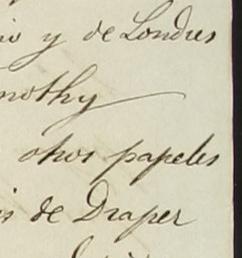 io y de Londres
nothy
otros papeles
is de Draper